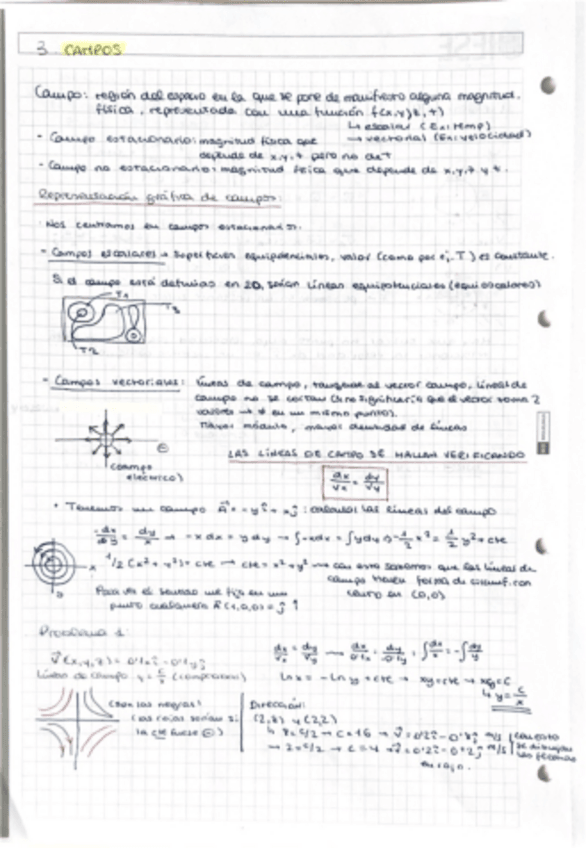 3. CAMPOS
Campo: región del espacio en la que se pone de manifiesto alguna magnitud
física, representada con una función f(x,y,z,t)
↳ escalar (Ex: temp)
→ vectorial (Ex: velocidad)
- Campo estacionario: magnitud física que
depende de x,y,z pero no de t
- Campo no estacionario: magnitud física que depende de x,y,z y t.
Representación gráfica de campos:
Nos centramos en campos estacionarios.
- Campos escalares → superficies equipotenciales, valor (como por ej, T) es constante.
Si el campo está definido en 2D, serían líneas equipotenciales (equiescalares)
T1
T3
T2
- Campos vectoriales: líneas de campo, tangente al vector campo, líneas de
campo no se cortan (sino significaría que el vector toma 2
valores en un mismo punto).
mayor módulo, mayor densidad de líneas
(campo
eléctrico)
LAS LÍNEAS DE CAMPO SE HALLAN VERIFICANDO
dx/Vx = dy/Vy
• Tenemos un campo A⃗ = -yî + xĵ : calcular las líneas del campo
-dx/y = dy/x → -x dx = y dy → ∫-xdx = ∫ydy → -1/2 x² = 1/2 y² + cte
1/2 (x² + y²) = cte → cte = x² + y² → con esto sabemos que las líneas de
campo tienen forma de circunf. con
centro en (0,0)
Para ver el sentido me fijo en un
punto cualquiera A⃗(1,0,0) = ĵ ↑
Problema 1:
V⃗(x,y,z) = 0'1xî - 0'1yĵ
Líneas de campo y = c/x (comprobar)
dx/Vx = dy/Vy → dx/0'1x = dy/-0'1y → ∫dx/x = -∫dy/y
ln x = -ln y + cte → xy = cte → xy = c
↳ y = c/x
(son las negras)
(las rojas serían si
la cte fuese ⊖)
Dirección:
(2,8) y (2,2)
↳ 8 = c/2 → c = 16 → V⃗ = 0'2î - 0'8ĵ m/s
→ 2 = c/2 → c = 4 → V⃗ = 0'2î - 0'2ĵ m/s
con esto
se dibujan
las flechas